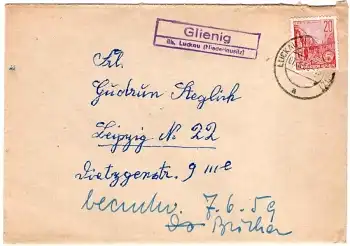 Glienig
üb. Luckau (Niederlausitz)
20
LUCKAU
a
Frl.
Gudrun Steglich
Leipzig N 22
Dietzgenstr. 9 III
7.6.59